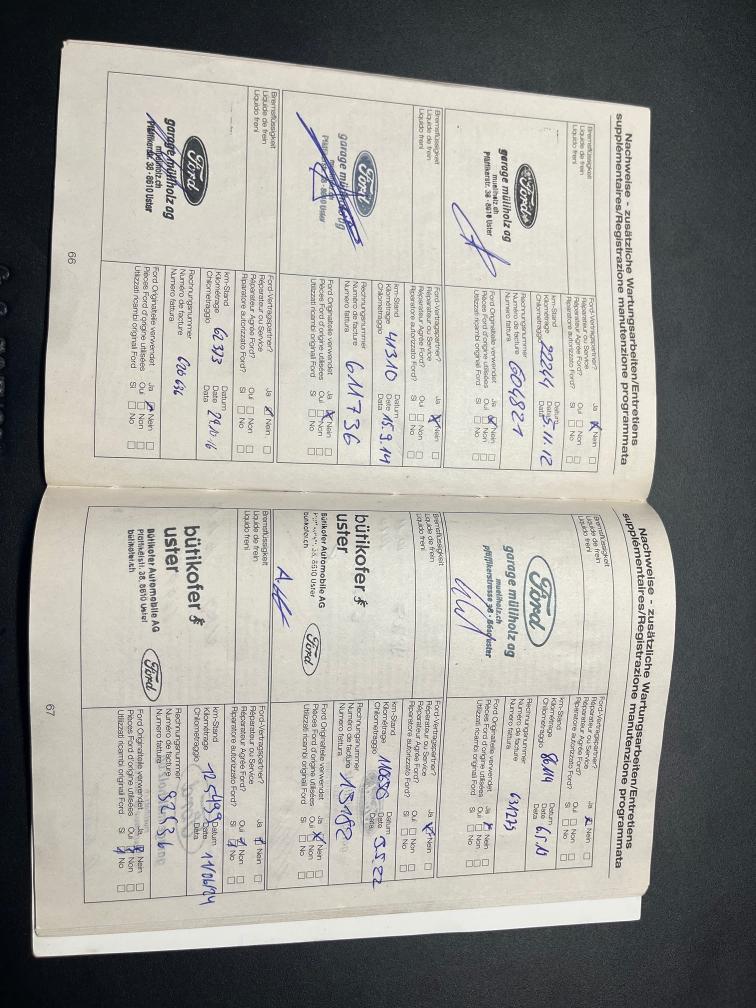 Nachweise - zusätzliche Wartungsarbeiten/Entretiens
supplémentaires/Registrazione manutenzione programmata
Bremsflüssigkeit
Liquide de frein
Liquido freni
Ford
garage müliholz ag
mueliholz.ch
Pfäffikerstr. 38 - 8610 Uster
Ford-Vertragspartner?
Réparateur ou Service
Réparateur Agréé Ford?
Riparatore autorizzato Ford?
Ja Nein
Oui Non
Si No
km-Stand
Kilométrage
Chilometraggio
22244
Datum
Date
Data
5.11.12
Rechnungsnummer
Numéro de facture
Numero fattura
604821
Ford Originalteile verwendet
Pièces Ford d'origine utilisées
Utilizzati ricambi original Ford
Ja Nein
Oui Non
Si No
Bremsflüssigkeit
Liquide de frein
Liquido freni
Ford
garage müliholz ag
Ford-Vertragspartner?
Réparateur ou Service
Réparateur Agréé Ford?
Riparatore autorizzato Ford?
Ja Nein
Oui Non
Si No
km-Stand
Kilométrage
Chilometraggio
41310
Datum
Date
Data
15.9.14
Rechnungsnummer
Numéro de facture
Numero fattura
611736
Ford Originalteile verwendet
Pièces Ford d'origine utilisées
Utilizzati ricambi original Ford
Ja Nein
Oui Non
Si No
Bremsflüssigkeit
Liquide de frein
Liquido freni
Ford
garage müliholz ag
mueliholz.ch
Pfäffikerstr. 38 - 8610 Uster
Ford-Vertragspartner?
Réparateur ou Service
Réparateur Agréé Ford?
Riparatore autorizzato Ford?
Ja Nein
Oui Non
Si No
km-Stand
Kilométrage
Chilometraggio
62373
Datum
Date
Data
Rechnungsnummer
Numéro de facture
Numero fattura
Ford Originalteile verwendet
Pièces Ford d'origine utilisées
Utilizzati ricambi original Ford
Ja Nein
Oui Non
Si No
66
Nachweise - zusätzliche Wartungsarbeiten/Entretiens
supplémentaires/Registrazione manutenzione programmata
Bremsflüssigkeit
Liquide de frein
Liquido freni
Ford
garage müliholz ag
mueliholz.ch
pfäffikerstrasse 38 - 8610 uster
Ford-Vertragspartner?
Réparateur ou Service
Réparateur Agréé Ford?
Riparatore autorizzato Ford?
Ja Nein
Oui Non
Si No
km-Stand
Kilométrage
Chilometraggio
Datum
Date
Data
Rechnungsnummer
Numéro de facture
Numero fattura
631273
Ford Originalteile verwendet
Pièces Ford d'origine utilisées
Utilizzati ricambi original Ford
Ja Nein
Oui Non
Si No
Bremsflüssigkeit
Liquide de frein
Liquido freni
bütikofer
uster
Bütikofer Automobile AG
38, 8610 Uster
bütikofer.ch
Ford
Ford-Vertragspartner?
Réparateur ou Service
Réparateur Agréé Ford?
Riparatore autorizzato Ford?
Ja Nein
Oui Non
Si No
km-Stand
Kilométrage
Chilometraggio
Datum
Date
Data
3.5.22
Rechnungsnummer
Numéro de facture
Numero fattura
Ford Originalteile verwendet
Pièces Ford d'origine utilisées
Utilizzati ricambi original Ford
Ja Nein
Oui Non
Si No
Bremsflüssigkeit
Liquide de frein
Liquido freni
bütikofer
uster
Bütikofer Automobile AG
Pfäffikerstr. 38, 8610 Uster
bütikofer.ch
Ford
Ford-Vertragspartner?
Réparateur ou Service
Réparateur Agréé Ford?
Riparatore autorizzato Ford?
Ja Nein
Oui Non
Si No
km-Stand
Kilométrage
Chilometraggio
125499
Datum
Date
Data
11/06/24
Rechnungsnummer
Numéro de facture
Numero fattura
92536
Ford Originalteile verwendet
Pièces Ford d'origine utilisées
Utilizzati ricambi original Ford
Ja Nein
Oui Non
Si No
67